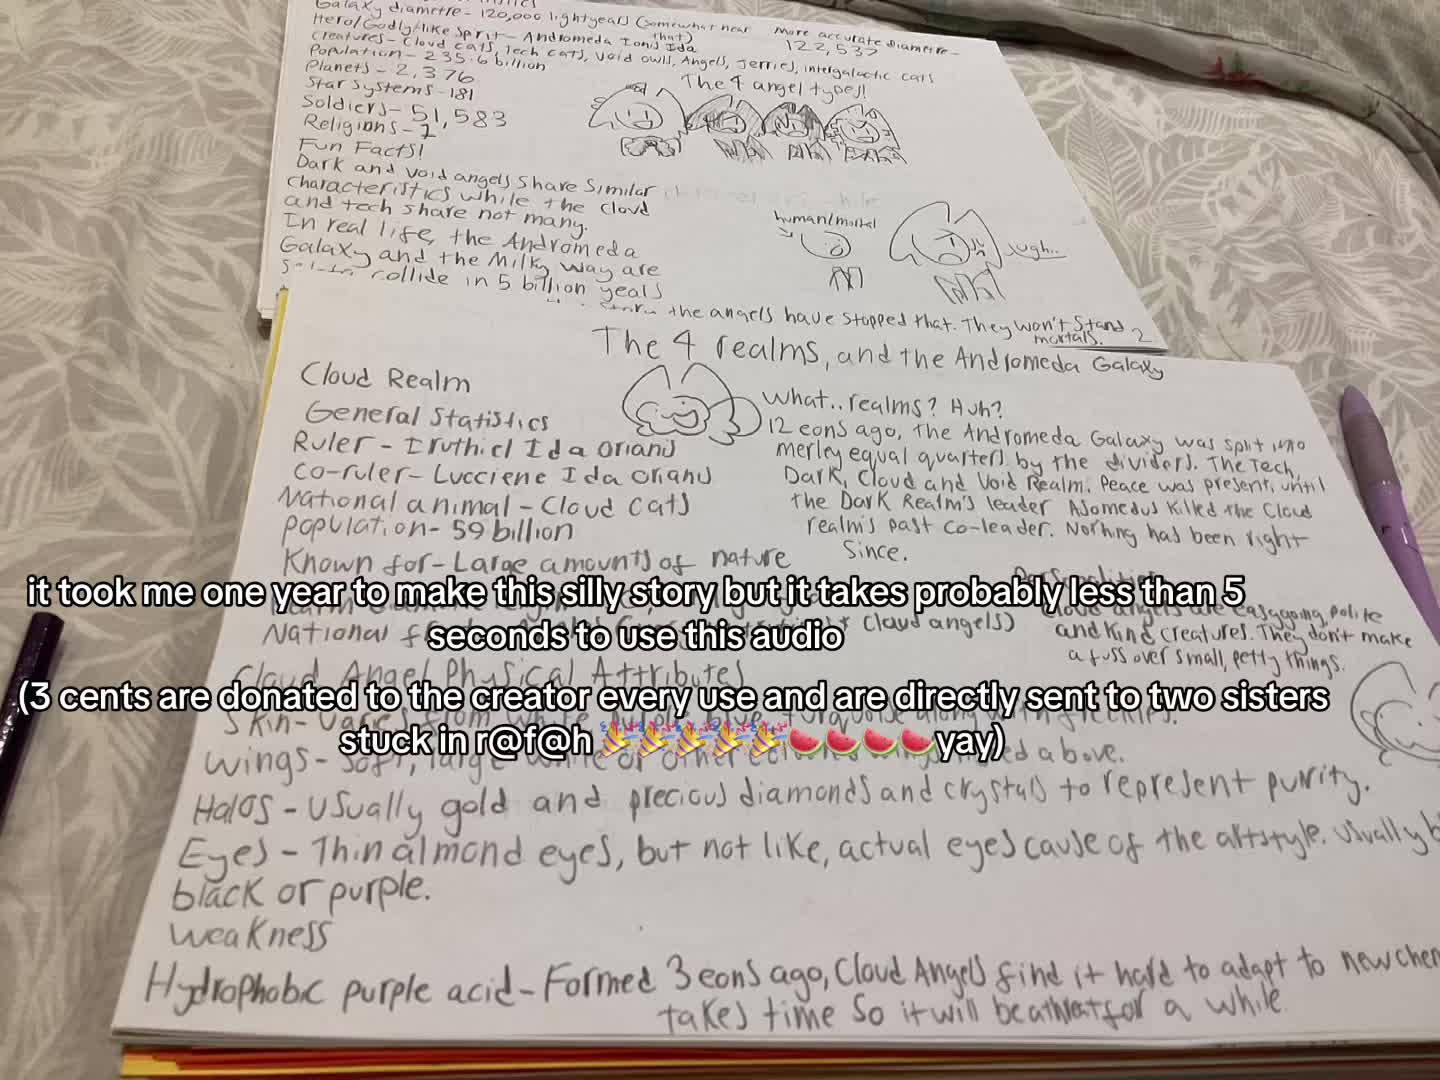 Galaxy diametre - 120,000 lightyears (somewhat near that)
More accurate diametre - 122,537
Hero/Godly-like Spirit - Andromeda Ionis Ida
Creatures - Cloud cats, tech cats, void owls, Angels, Jerries, intergalactic cats
Population - 235.6 billion
Planets - 2,376
Star Systems - 181
Soldiers - 51,583
Religions - 7
The 4 angel types!
Fun Facts!
Dark and void angels share similar
characteristics while the cloud
and tech share not many.
In real life, the Andromeda
Galaxy and the Milky way are
collide in 5 billion years
human/mortal
ugh..
the angels have stopped that. They won't stand
mortals.
2
The 4 realms, and the Andromeda Galaxy
Cloud Realm
General Statistics
Ruler - Iruthiel Ida Orianis
Co-ruler - Lucciene Ida Orianis
National animal - Cloud cats
population - 59 billion
Known for - Large amounts of nature
What.. realms? Huh?
12 eons ago, the Andromeda Galaxy was split into
merley equal quarters by the dividers. The Tech,
Dark, Cloud and Void Realm. Peace was present, until
the Dark Realm's leader Asomedus killed the Cloud
realm's past co-leader. Nothing has been right
since.
Personalities
Cloud angels are easygoing, polite
and kind creatures. They don't make
a fuss over small, petty things.
it took me one year to make this silly story but it takes probably less than 5
seconds to use this audio
(3 cents are donated to the creator every use and are directly sent to two sisters
stuck in r@f@h 🎉🎉🎉🎉🎉🍉🍉🍉🍉yay)
National
Cloud angels)
Cloud Angel Physical Attributes
Skin - varies from white
turquoise along with freckles.
Wings - soft, large white or other
above.
Halos - usually gold and precious diamonds and crystals to represent purity.
Eyes - Thin almond eyes, but not like, actual eyes cause of the artstyle. Usually
black or purple.
Weakness
Hydrophobic purple acid - Formed 3 eons ago, Cloud Angels find it hard to adapt to new
takes time so it will be a threat for a while.